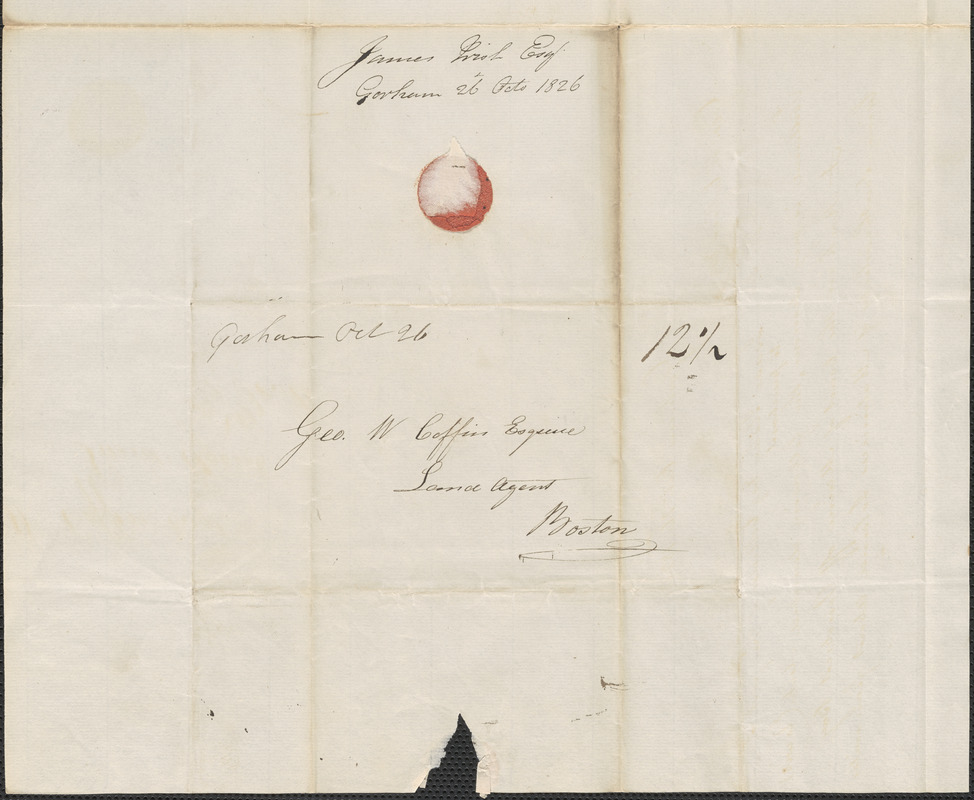 James Irish Esqr
Gorham 26th Octo 1826
Gorham Oct 26
12 1/2
Geo. W Coffin Esquire
Land Agent
Boston